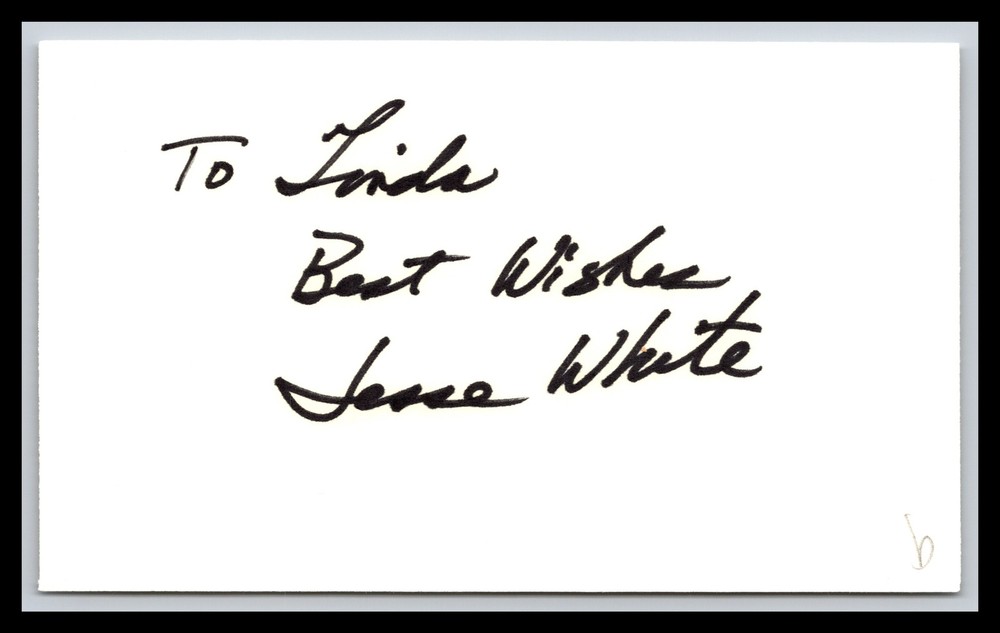 To Linda
Best Wishes
Jesse White
b